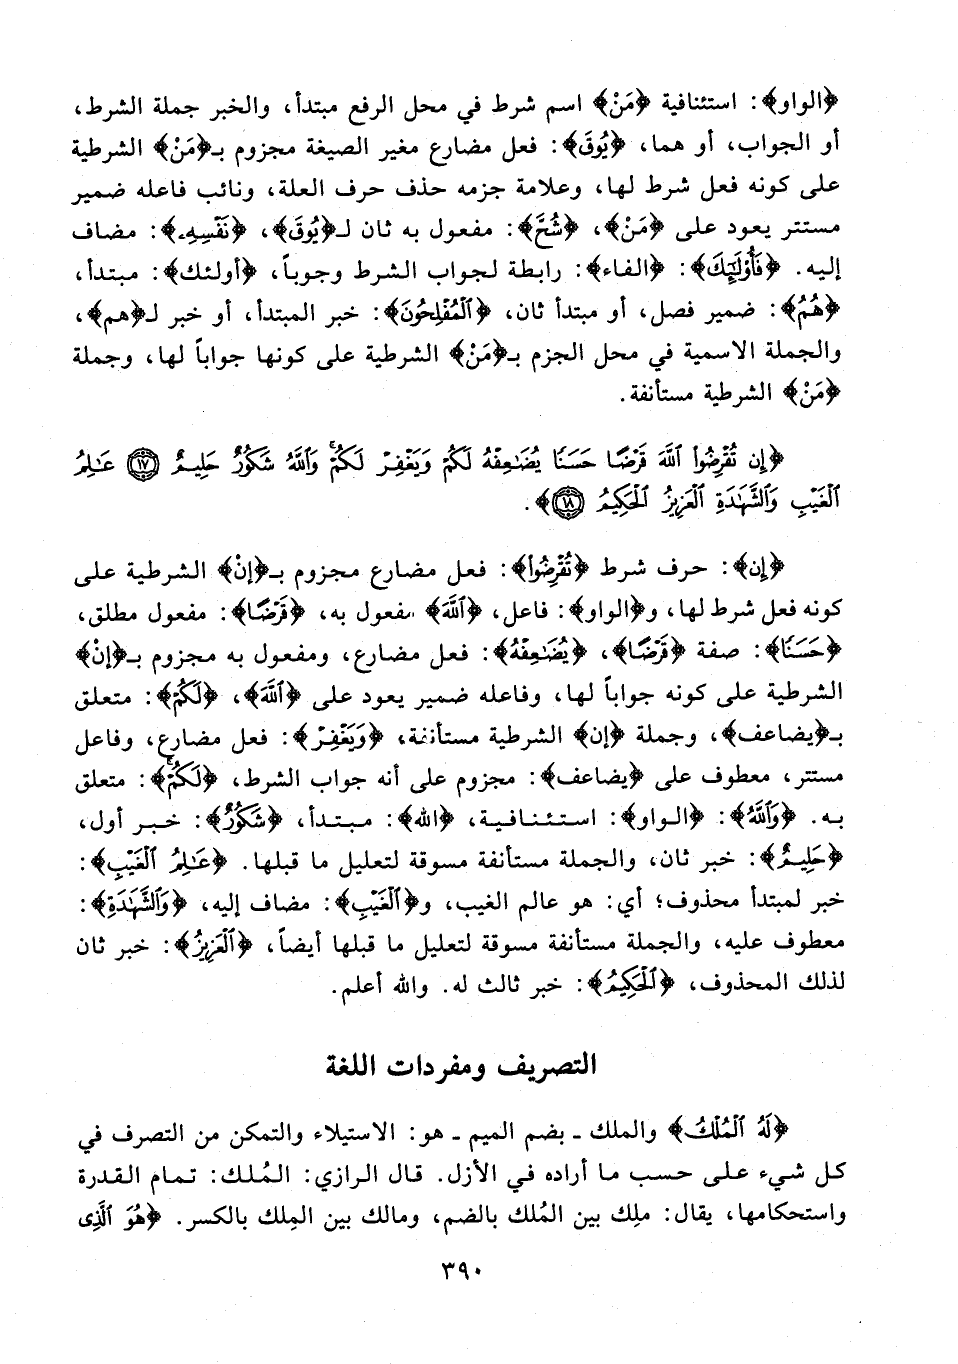 ﴿الواو﴾: استئنافية ﴿مَنْ﴾ اسم شرط في محل الرفع مبتدأ، والخبر جملة الشرط،
أو الجواب، أو هما، ﴿يُوقَ﴾: فعل مضارع مغير الصيغة مجزوم بـ﴿مَنْ﴾ الشرطية
على كونه فعل شرط لها، وعلامة جزمه حذف حرف العلة، ونائب فاعله ضمير
مستتر يعود على ﴿مَنْ﴾، ﴿شُحَّ﴾: مفعول به ثان لـ﴿يُوقَ﴾، ﴿نَفْسِهِۦ﴾: مضاف
إليه. ﴿فَأُوْلَٰٓئِكَ﴾: ﴿الفاء﴾: رابطة لجواب الشرط وجوباً، ﴿أولئك﴾: مبتدأ،
﴿هُمُ﴾: ضمير فصل، أو مبتدأ ثان، ﴿ٱلْمُفْلِحُونَ﴾: خبر المبتدأ، أو خبر لـ﴿هم﴾،
والجملة الاسمية في محل الجزم بـ﴿مَنْ﴾ الشرطية على كونها جواباً لها، وجملة
﴿مَنْ﴾ الشرطية مستأنفة.
﴿إِن تُقْرِضُواْ ٱللَّهَ قَرْضًا حَسَنًا يُضَٰعِفْهُ لَكُمْ وَيَغْفِرْ لَكُمْ ۚ وَٱللَّهُ شَكُورٌ حَلِيمٌ ١٧ عَٰلِمُ
ٱلْغَيْبِ وَٱلشَّهَٰدَةِ ٱلْعَزِيزُ ٱلْحَكِيمُ ١٨﴾.
﴿إِن﴾: حرف شرط ﴿تُقْرِضُواْ﴾: فعل مضارع مجزوم بـ﴿إِنْ﴾ الشرطية على
كونه فعل شرط لها، و﴿الواو﴾: فاعل، ﴿ٱللَّهَ﴾ مفعول به، ﴿قَرْضًا﴾: مفعول مطلق،
﴿حَسَنًا﴾: صفة ﴿قَرْضًا﴾، ﴿يُضَٰعِفْهُ﴾: فعل مضارع، ومفعول به مجزوم بـ﴿إِنْ﴾
الشرطية على كونه جواباً لها، وفاعله ضمير يعود على ﴿ٱللَّهَ﴾، ﴿لَكُمْ﴾: متعلق
بـ﴿يضاعف﴾، وجملة ﴿إن﴾ الشرطية مستأنفة، ﴿وَيَغْفِرْ﴾: فعل مضارع، وفاعل
مستتر، معطوف على ﴿يضاعف﴾: مجزوم على أنه جواب الشرط، ﴿لَكُمْ ۚ﴾: متعلق
به. ﴿وَٱللَّهُ﴾: ﴿الواو﴾: استئنافية، ﴿الله﴾: مبتدأ، ﴿شَكُورٌ﴾: خبر أول،
﴿حَلِيمٌ﴾: خبر ثان، والجملة مستأنفة مسوقة لتعليل ما قبلها. ﴿عَٰلِمُ ٱلْغَيْبِ﴾:
خبر لمبتدأ محذوف؛ أي: هو عالم الغيب، و﴿ٱلْغَيْبِ﴾: مضاف إليه، ﴿وَٱلشَّهَٰدَةِ﴾:
معطوف عليه، والجملة مستأنفة مسوقة لتعليل ما قبلها أيضاً، ﴿ٱلْعَزِيزُ﴾: خبر ثان
لذلك المحذوف، ﴿ٱلْحَكِيمُ﴾: خبر ثالث له. والله أعلم.
التصريف ومفردات اللغة
﴿لَهُ ٱلْمُلْكُ﴾ والملك ـ بضم الميم ـ هو: الاستيلاء والتمكن من التصرف في
كل شيء على حسب ما أراده في الأزل. قال الرازي: المُلك: تمام القدرة
واستحكامها، يقال: ملِك بين المُلك بالضم، ومالك بين المِلك بالكسر. ﴿هُوَ ٱلَّذِى
٣٩٠